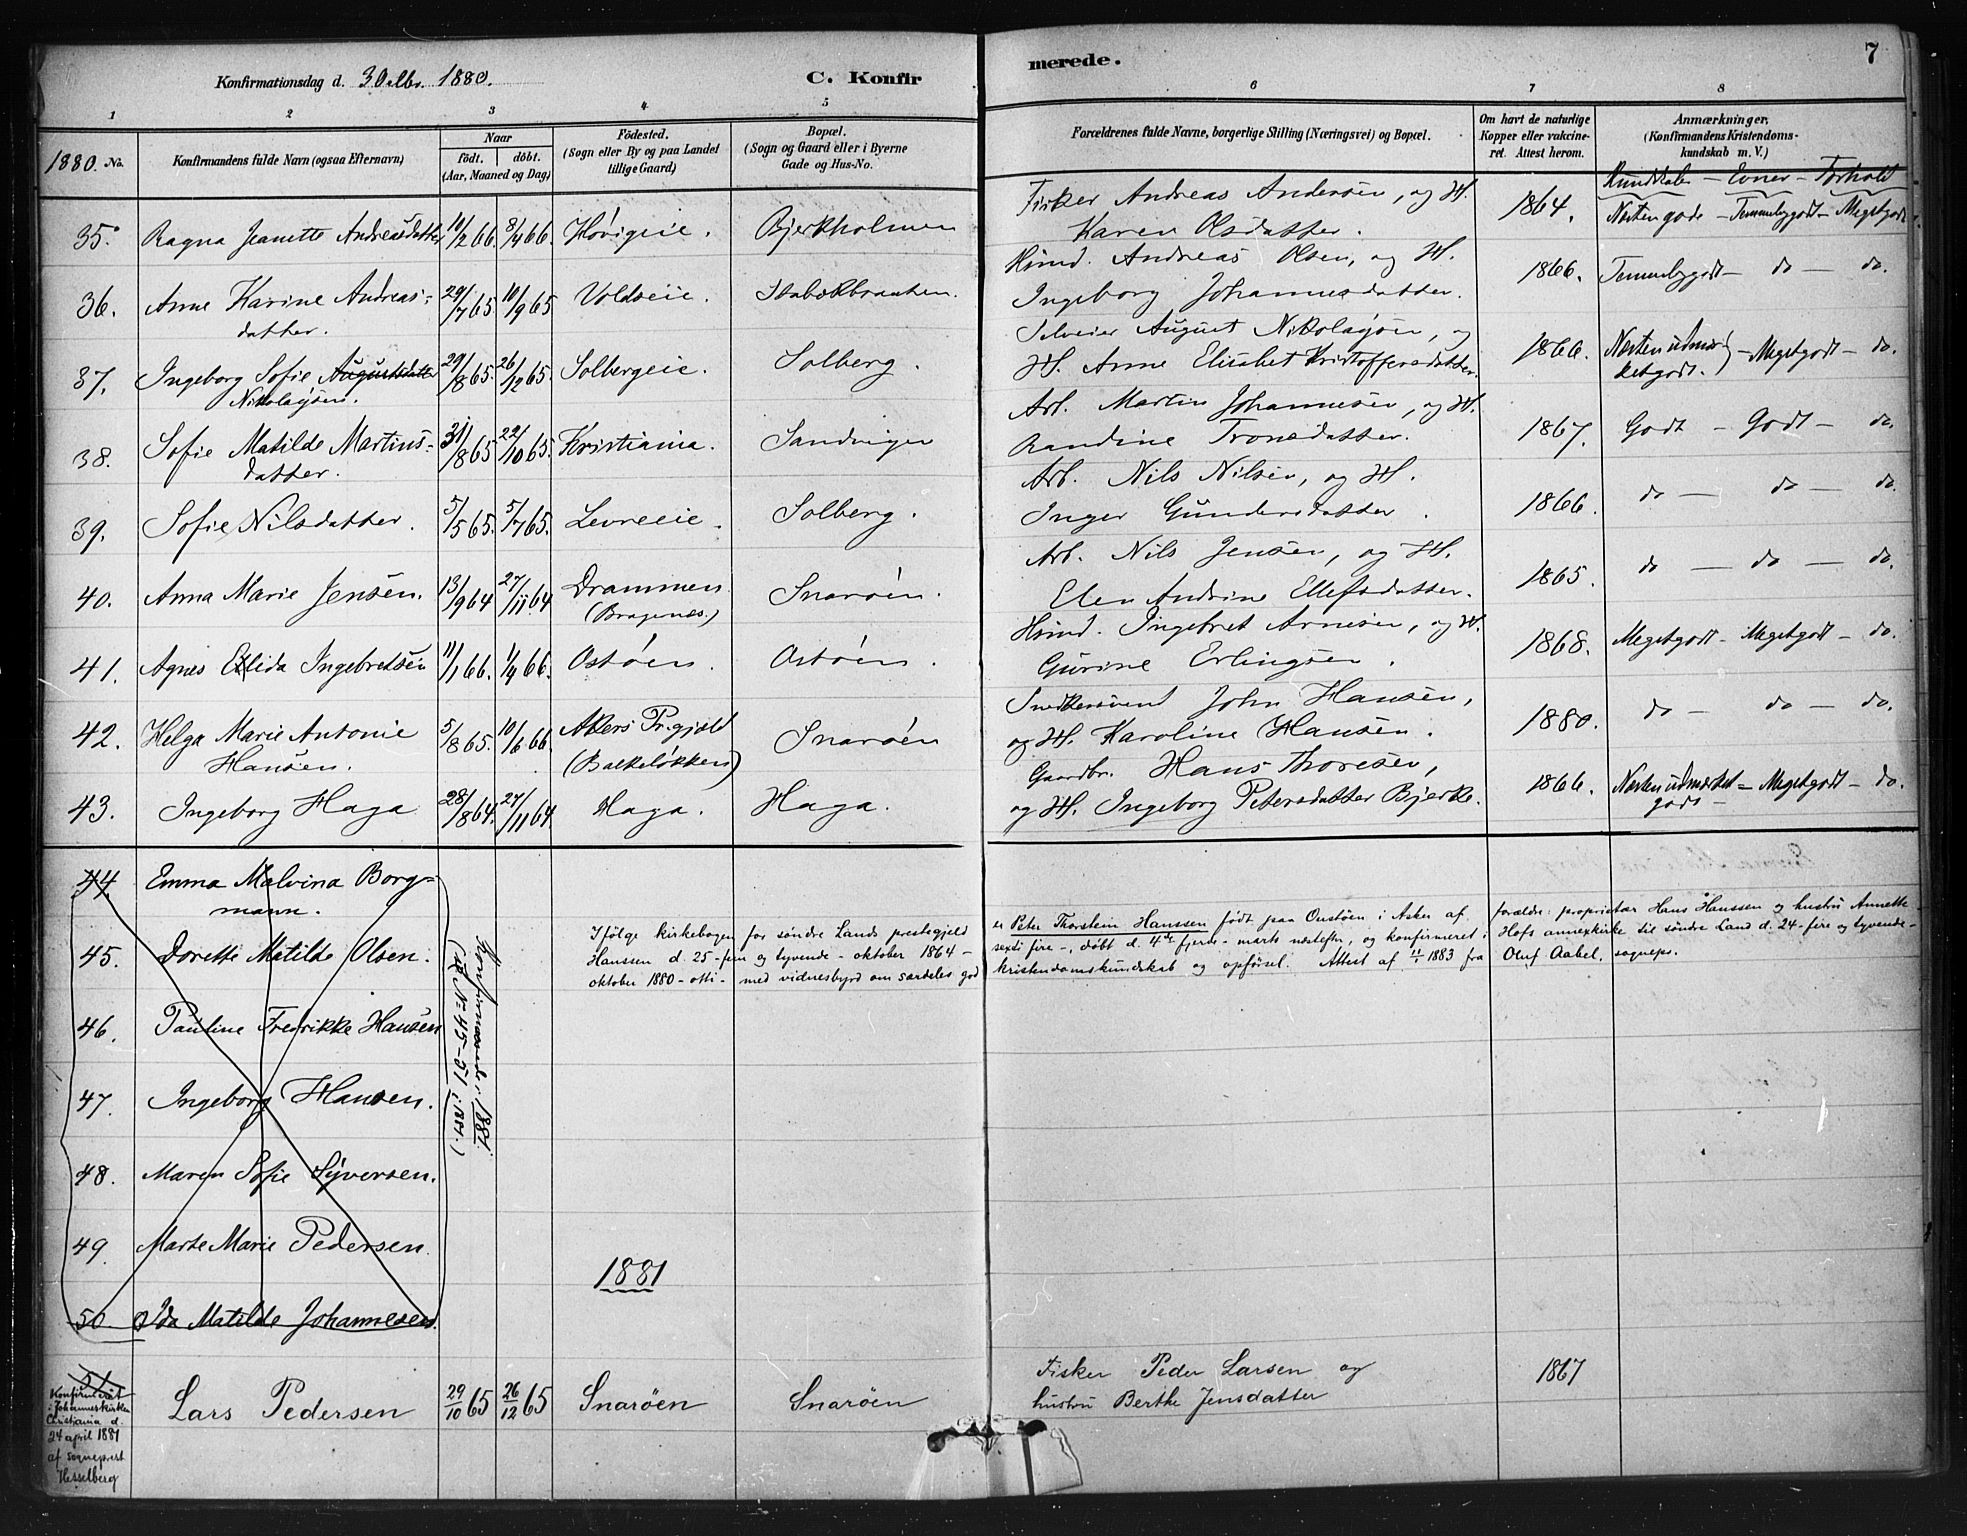 Konfirmationsdag d. 3 Oktbr. 1880.
C. Konfirmerede.
7
1 2 3 4 5 6 7 8
1880. No.
Konfirmandens fulde Navn (ogsaa Efternavn)
Naar
født. døbt.
(Aar, Maaned og Dag)
Fødested.
(Sogn eller By og paa Landet
tillige Gaard)
Bopæl.
(Sogn og Gaard eller i Byerne
Gade og Hus-No.
Forældrenes fulde Navne, borgerlige Stilling (Næringsvei) og Bopæl.
Om havt de naturlige
Kopper eller vakcine-
ret. Attest herom.
Anmærkninger,
(Konfirmandens Kristendoms-
kundskab m. V.)
Kundskaber – Evner – Forhold
35. Ragna Jeanette Andreasdatter 11/2 66. 8/4 66. Høvigeie. Bjerkholmen Fisker Andreas Andersen, og H. 1864. Næsten gode – Temmeligodt – Megetgodt
Karen Olsdatter.
36. Anne Karine Andreas= 29/7 65 10/9 65 Voldseie. Stabækbraaten. Husmd. Andreas Olsen, og H. 1866. Temmeligodt – do – do.
datter. Ingeborg Johannesdatter.
37. Ingeborg Sofie Augustdatter 29/8 65. 26/12 65. Solbergeie. Solberg. Selveier August Nikolaysen, og 1866. Næsten udmær- – Megetgodt – do.
Nikolaysen. H. Anne Elisabet Kristoffersdatter. ketgodt.
38. Sofie Matilde Martins- 31/8 65 22/10 65. Kristiania. Sandvigen Arb. Martin Johannesen, og H. 1867. Godt – Godt – do.
datter. Randine Tronsdatter.
39. Sofie Nilsdatter. 5/5 65. 5/7 65. Levreeie. Solberg. Arb. Nils Nilsen, og H. 1866. do – do – do.
Inger Gundersdatter.
40. Anna Marie Jensen. 13/9 64 27/11 64 Drammen Snarøen. Arb. Nils Jensen, og H. 1865. do – do – do.
(Bragenes.) Elen Andrine Ellefsdatter.
41. Agnes Elida Ingebretsen 11/1 66. 1/4 66. Ostøen. Ostøen. Husmd. Ingebret Arnesen, og H. 1868. Megetgodt – Megetgodt – do.
Gurine Erlingsen.
42. Helga Marie Antonie 5/8 65. 10/6 66. Akers Pr.gjeld Snarøen Snedkersvend John Hansen, 1880. do – do – do.
Hansen. (Bakkeløkken) og H. Karoline Hansen.
43. Ingeborg Haga 28/8 64. 27/11 64. Haga. Haga. Gaardbr. Hans Thoresen, 1866. Næsten udmærket – Megetgodt – do.
og H. Ingeborg Petersdatter Bjerke. godt –
44. Emma Malvina Borg=
mann.
45. Dorette Matilde Olsen.
46. Pauline Fredrikke Hansen
47. Ingeborg Hansen.
48. Maren Sofie Syversen.
49. Marte Marie Pedersen.
50. Ida Matilde Johannesen.
(No 45–51 i 1881.)
Ifølge kirkebogen for søndre Lands prestegjeld er Peter Thorstein Hanssen født paa Onstøen i Asker af forældre: proprietær Hans Hanssen og hustru Annette
Hanssen d. 25 – fem og tyvende – oktober 1864 – sexti fire –, døbt d. 4de fjerde – marts næstefter, og konfirmeret i Hofs annexkirke til søndre Land d. 24 – fire og tyvende –
oktober 1880 – otti – med vidnesbyrd om særdeles god kristendomskundskab og opførsel. Attest af 11/1 1883 fra Oluf Aabel, sognepr.
1881
51. Lars Pedersen 29/10 65 26/12 65 Snarøen Snarøen Fisker Peder Larsen og 1867
hustru Berthe Jensdatter
Konfirmeret
i Johanneskirken
Christiania d.
24 april 1881
af sogneprest
Hesselberg